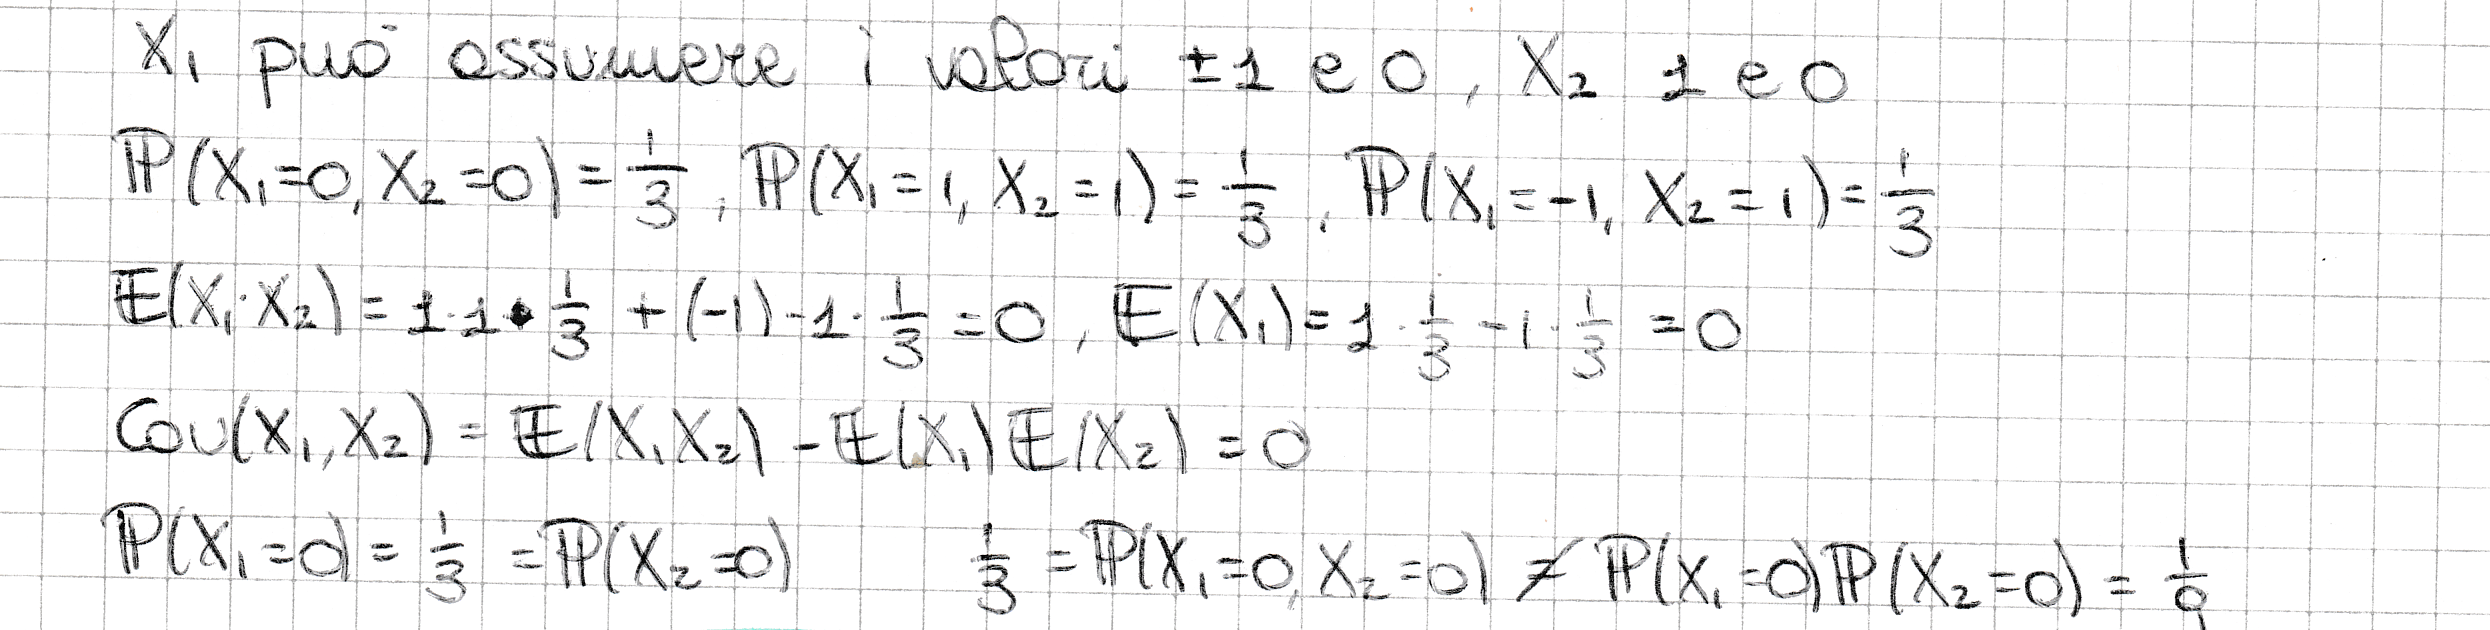 X₁ può assumere i valori ±1 e 0, X₂ 1 e 0
ℙ(X₁=0, X₂=0) = 1/3, ℙ(X₁=1, X₂=1) = 1/3, ℙ(X₁=-1, X₂=1) = 1/3
𝔼(X₁·X₂) = 1·1·1/3 + (-1)·1·1/3 = 0, 𝔼(X₁) = 1·1/3 - 1·1/3 = 0
Cov(X₁, X₂) = 𝔼(X₁X₂) - 𝔼(X₁)𝔼(X₂) = 0
ℙ(X₁=0) = 1/3 = ℙ(X₂=0) 1/3 = ℙ(X₁=0, X₂=0) ≠ ℙ(X₁=0)ℙ(X₂=0) = 1/9